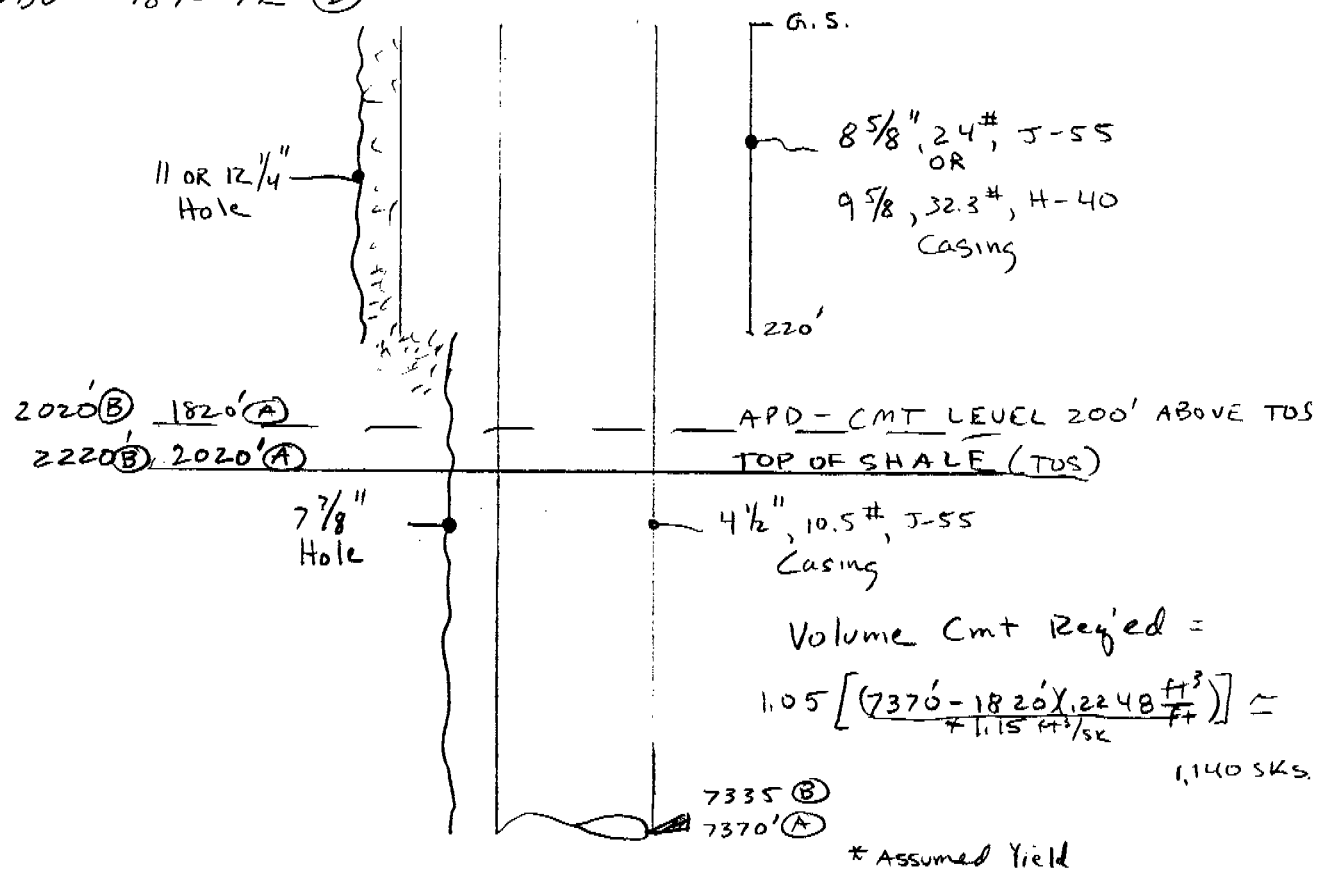 G.S.
8 5/8", 24#, J-55
OR
9 5/8, 32.3#, H-40
Casing
11 OR 12 1/4"
Hole
220'
2020' Ⓑ 1820' Ⓐ
APD - CMT LEVEL 200' ABOVE TOS
2220' Ⓑ, 2020' Ⓐ
TOP OF SHALE (TOS)
7 7/8"
Hole
4 1/2", 10.5#, J-55
Casing
Volume Cmt Req'ed =
1.05 [(7370' - 1820')(.2248 ft³/Ft)] ≃
* 1.15 ft³/sk
1,140 sks.
7335 Ⓑ
7370' Ⓐ
* Assumed Yield